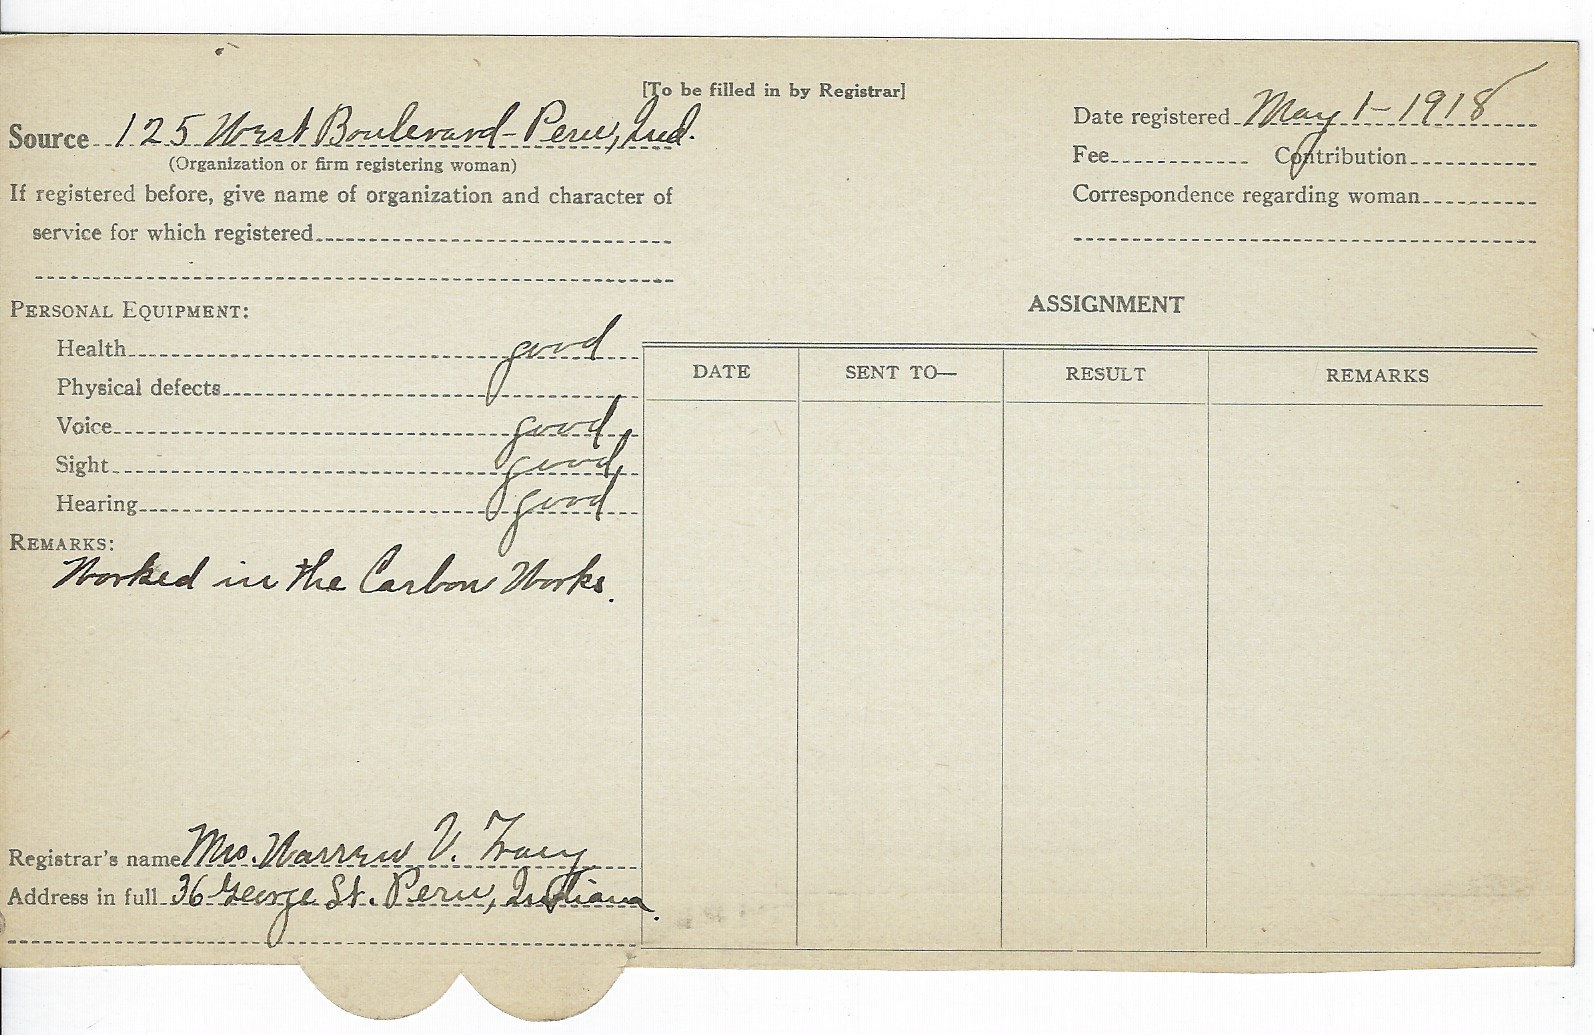 [To be filled in by Registrar]
Source 125 West Boulevard - Peru, Ind.
(Organization or firm registering woman)
If registered before, give name of organization and character of
service for which registered
Date registered May 1 - 1918
Fee Contribution
Correspondence regarding woman
PERSONAL EQUIPMENT:
Health good
Physical defects
Voice good
Sight good
Hearing good
REMARKS:
Worked in the Carbon Works.
Registrar's name Mrs. Warren V. Tracy
Address in full 36 George St. Peru, Indiana.
ASSIGNMENT
DATE SENT TO— RESULT REMARKS